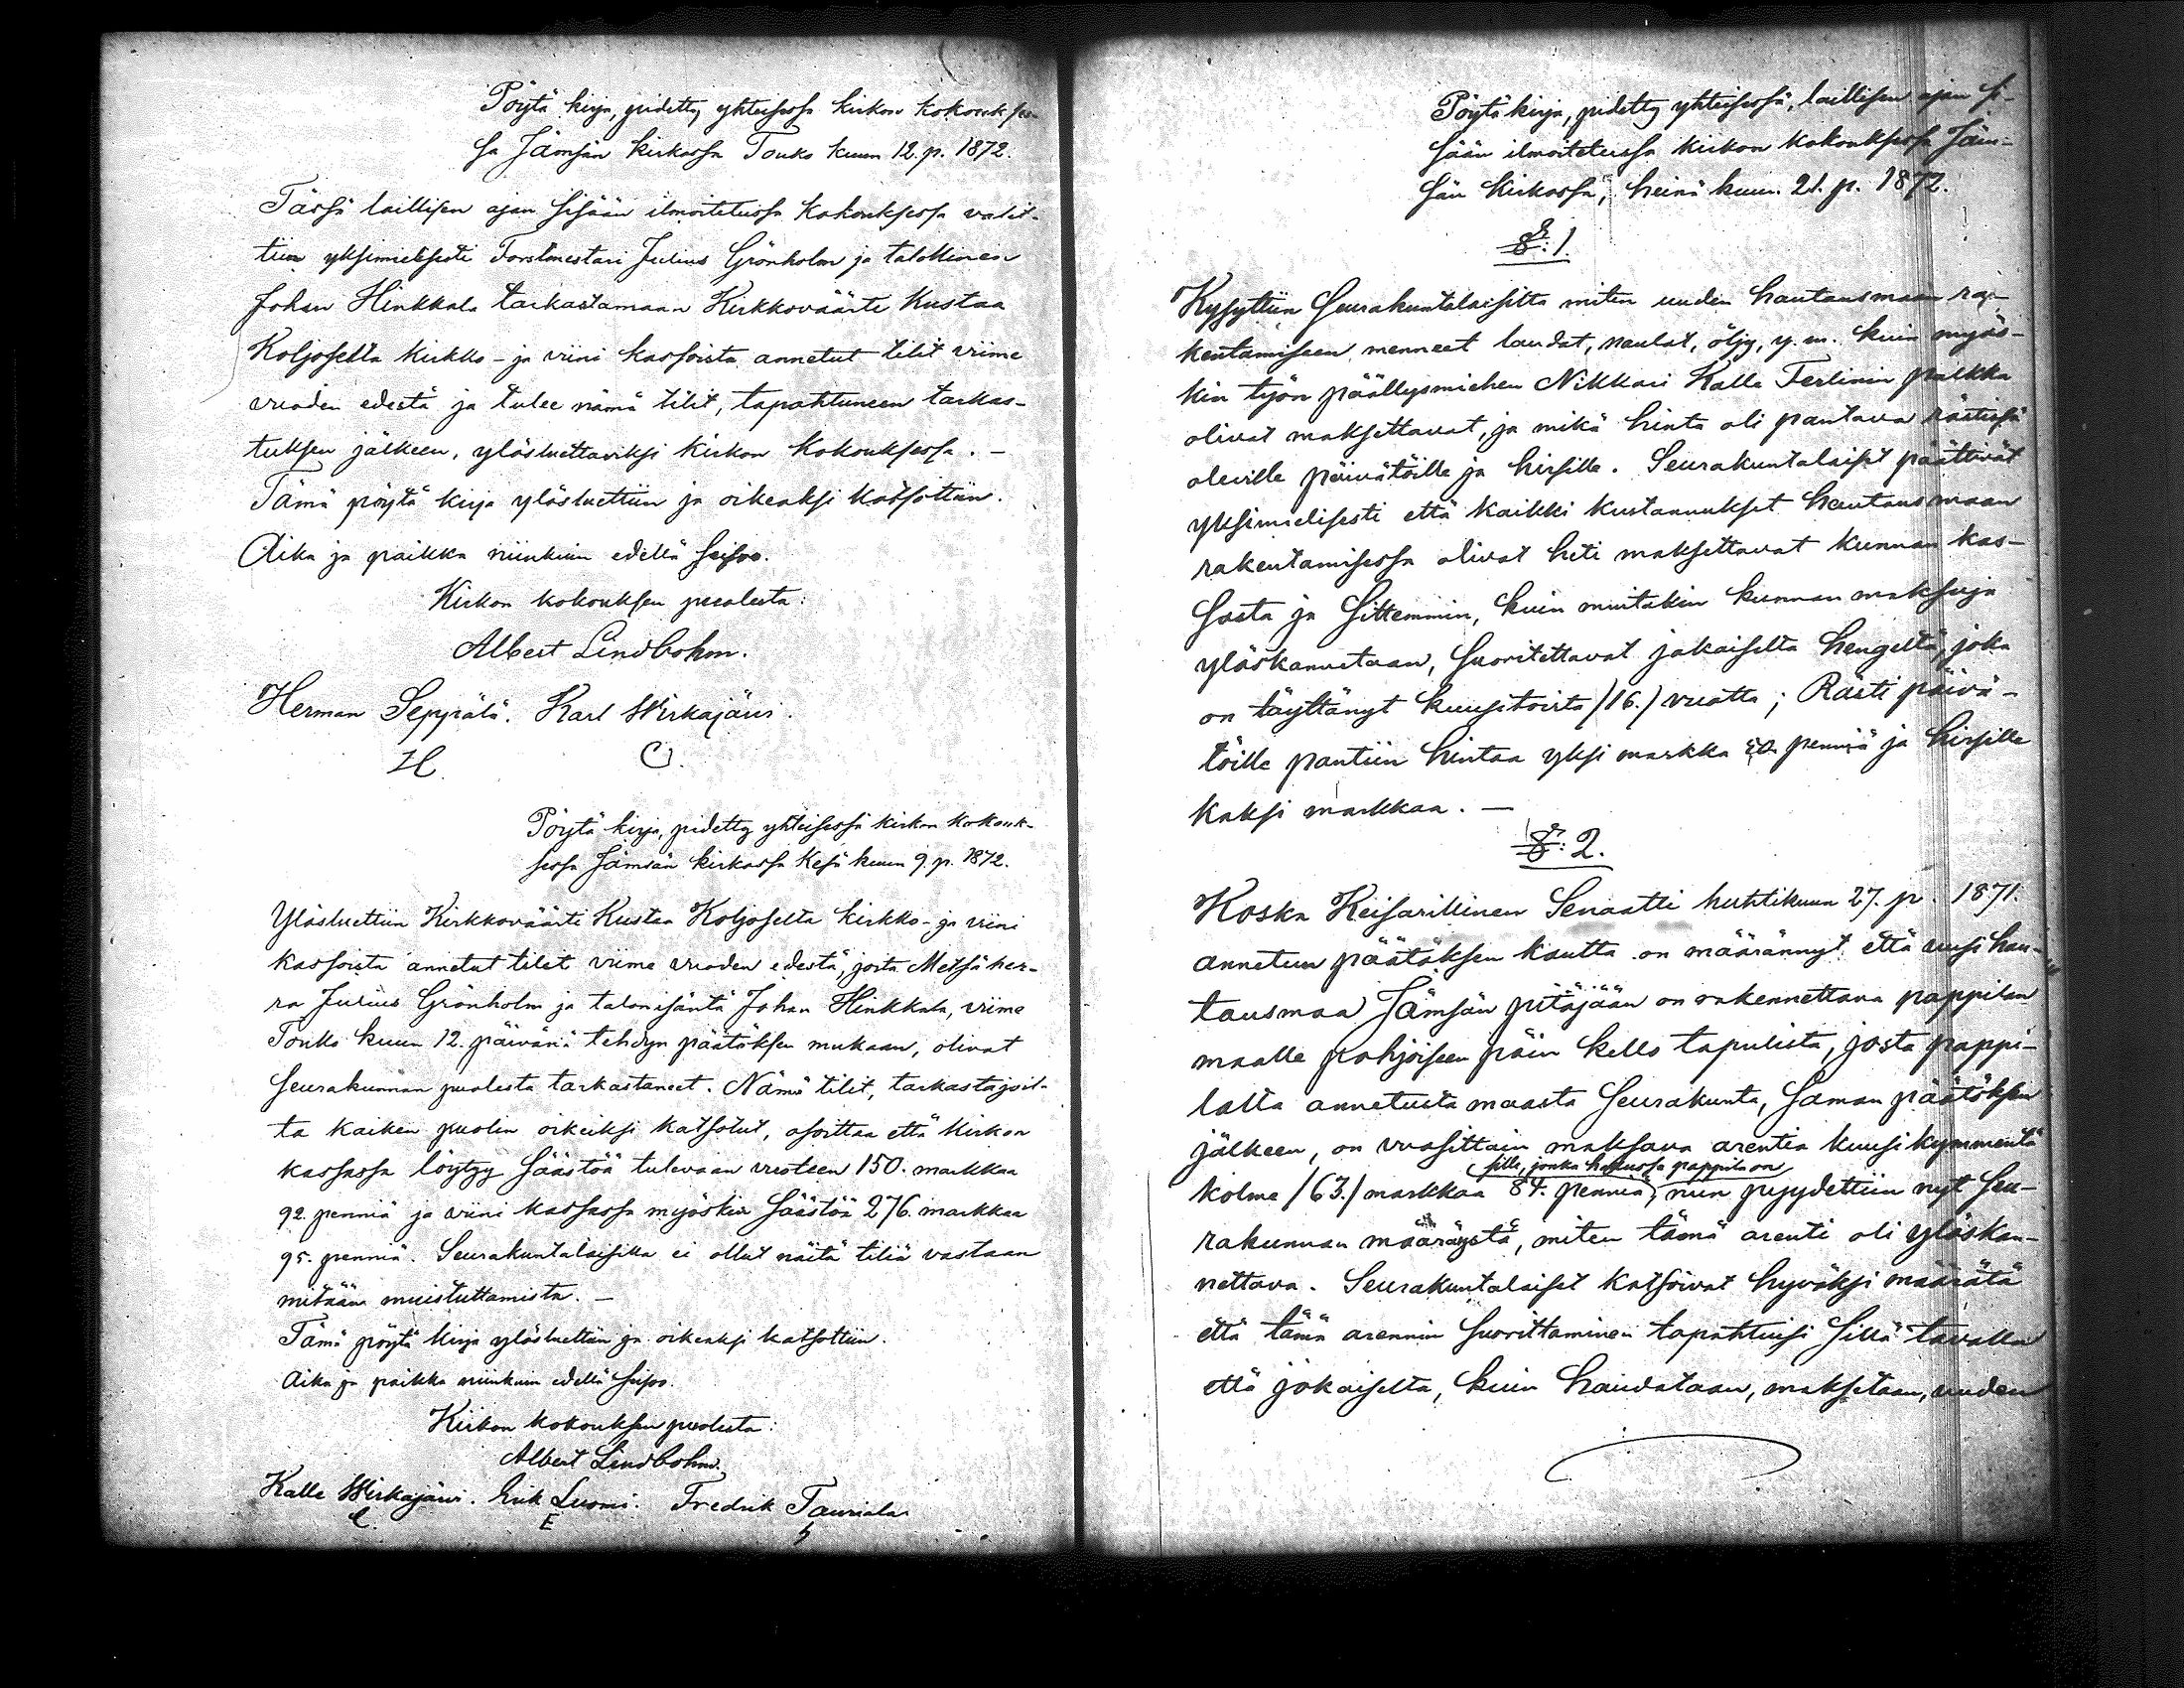 Pöytä kirja, pidetty yhteisessa kirkon kokoukses-
sa Jämsän kirkossa Touko kuun 12. p. 1872.
Tässä laillisen ajan sisään ilmoitetussa kokouksessa valit-
tiin yksimielisesti Forstmestari Julius Grönholm ja talollinen
Johan Hinkkala tarkastamaan Kirkkoväärti Kustaa
Koljoselta kirkko- ja viini kassoista annetut tilit viime
vuoden edestä ja tulee nämä tilit, tapahtuneen tarkas-
tuksen jälkeen, ylösluettaviksi kirkon kokouksessa. –
Tämä pöytä kirja ylösluettiin ja oikeaksi katsottiin.
Aika ja paikka niinkuin edellä seisoo.
Kirkon kokouksen puolesta:
Albert Lindbohm.
Herman Seppälä. Karl Wirkajärvi.
H.
Pöytä kirja, pidetty yhteisessä kirkon kokouk-
sessa Jämsän kirkossa Kesä kuun 9. p. 1872.
Ylösluettiin Kirkkoväärti Kustaa Koljoselta kirkko- ja viini
kassoista annetut tilit viime vuoden edestä, josta Metsäher-
ra Julius Grönholm ja talonisäntä Johan Hinkkala, viime
Touko kuun 12. päivänä tehdyn päätöksen mukaan, olivat
seurakunnan puolesta tarkastaneet. Nämä tilit, tarkastajoil-
ta kaiken puolin oikeiksi katsotut, osoittaa että kirkon
kassassa löytyy säästöä tulevaan vuoteen 150. markkaa
92. penniä ja viini kassassa myöskin säästöä 276. markkaa
95. penniä. Seurakuntalaisilla ei ollut näitä tiliä vastaan
mitään muistuttamista. –
Tämä pöytä kirja ylösluettiin ja oikeaksi katsottiin.
Aika ja paikka niinkuin edellä seisoo.
Kirkon kokouksen puolesta:
Albert Lindbohm.
Kalle Wirkajärvi. Erik Luomi. Fredrik Tauriala
E
Pöytä kirja, pidetty yhteisessä, laillisen ajan si-
sään ilmoitetussa kirkon kokouksessa Jäm-
sän kirkossa, heinä kuun 21. p. 1872.
§: 1.
Kysyttiin Seurakuntalaisilta miten uuden hautausmaan ra-
kentamiseen menneet laudat, naulat, öljy, y. m. kuin myös-
kin työn päällysmiehen Nikkari Kalle Ferlinin palkka
olivat maksettavat, ja mikä hinta oli pantava rästissä
oleville päivätöille ja hirsille. Seurakuntalaiset päättivät
yksimielisesti että kaikki kustannukset hautausmaan
rakentamisessa olivat heti maksettavat kunnan kas-
sasta ja sittemmin, kuin muitakin kunnan maksuja
ylöskannetaan, suoritettavat jokaiselta hengeltä, joka
on täyttänyt kuusitoista /16./ vuotta; Rästi päivä-
töille pantiin hintaa yksi markka 50. penniä ja hirsille
kaksi markkaa. –
§: 2.
Koska Keisarillinen Senaatti huhtikuun 27. p. 1871.
annetun päätöksen kautta on määrännyt että uusi hau-
tausmaa Jämsän pitäjään on rakennettava pappilan
maalle pohjoiseen päin kello tapulista, josta pappi-
lalta annetusta maasta Seurakunta, saman päätöksen
jälkeen, on vuosittain maksava arentia kuusikymmentä
sille, jonka hallussa pappila on
kolme /63./ markkaa 84. penniä, niin pyydettiin nyt Seu-
rakunnan määräystä, miten tämä arenti oli ylöskan-
nettava. Seurakuntalaiset katsoivat hyväksi määrätä
että tämä arennin suorittaminen tapahtuisi sillä tavalla
että jokaiselta, kuin haudataan, maksetaan, uuden